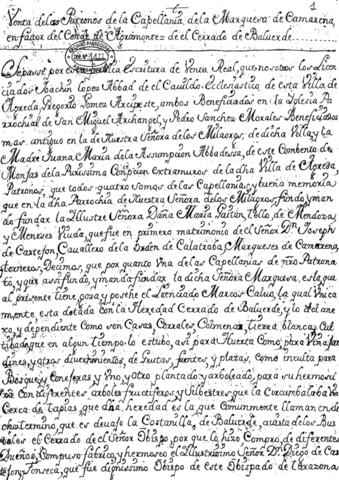 1
Venta de los Patronos de la Capellania, de la Marquesa de Camarena,
en favor del Conde de Agramonte = de el Cerrado de Balverde
Sepasse por Publica Escritura de Venta Real, que nosotros los Licen
ciados Joachin Lopez Abbad de el Cavildo Eclesiastico, de esta Villa de
Agreda, Gregorio Gomez Arcipreste, ambos Beneficiados en la Iglesia Pa
rrochial de San Miguel Archangel, y Pedro Sanchez Morales Beneficiado
mas antiguo en la de Nuestra Señora de los Milagros, de dicha Villa, y la
Madre Juana Maria de la Assumpcion Abbadessa, de este Combento de
Monjas de la Purissima Conpcion extramuros de la dha Villa de Agreda,
Patronos, que todos quatro somos de las Capellanias, y buena memoria
que en la dha Parrochia de Nuestra Señora de los Milagros, fundo, y man
do fundar la Illustre Señora, Doña Maria Gaitan, Tello de Mendoza,
y Meneses Viuda, que fue en primero matrimonio de el Señor Dn. Joseph
de Castejon Cavallero de la Orden de Calatraba, Marqueses de Camarena,
Dezimos, que por quanto Vna de las Capellanias de nro Patrona
to, y que assi fundo, y manda fundar la dicha Señora Marquesa, es la que
al presente tiene, goza, y posehe el Licenciado Marcos Calvo, la qual Vnica
mente, esta dotada con la Heredad Cerrado de Balverde, y lo a el ane
xo, y dependiente como son Casas, Corrales, Colmenar, tierra blanca, Cul
tibada, que en algun tiempo lo estubo, assi para Huerta como para Vna, Jar
dines, y otros divertimientos, de frutas, fuentes, y plazas, como inculta para
Bosque, y Conejeras, y Vno, y otro plantado, y arboleado, para su hermosu
ra con diferentes arboles fructiferos, y silvestres, que la circumbalaba Vna
Cerca de tapias, que dha, heredad es la que comunmente llaman en di
cho termino, que es devajo la Costanilla, de Balverde,
el Cerrado de el Señor Obispo, por que lo hizo Compro, de diferentes
Dueños, Compuso fabrico, y hermoseo el Illustrissimo Señor Dn. Diego de Cas
tejon, y Fonseca, que fue dignissimo Obispo de este Obispado de Tarazona